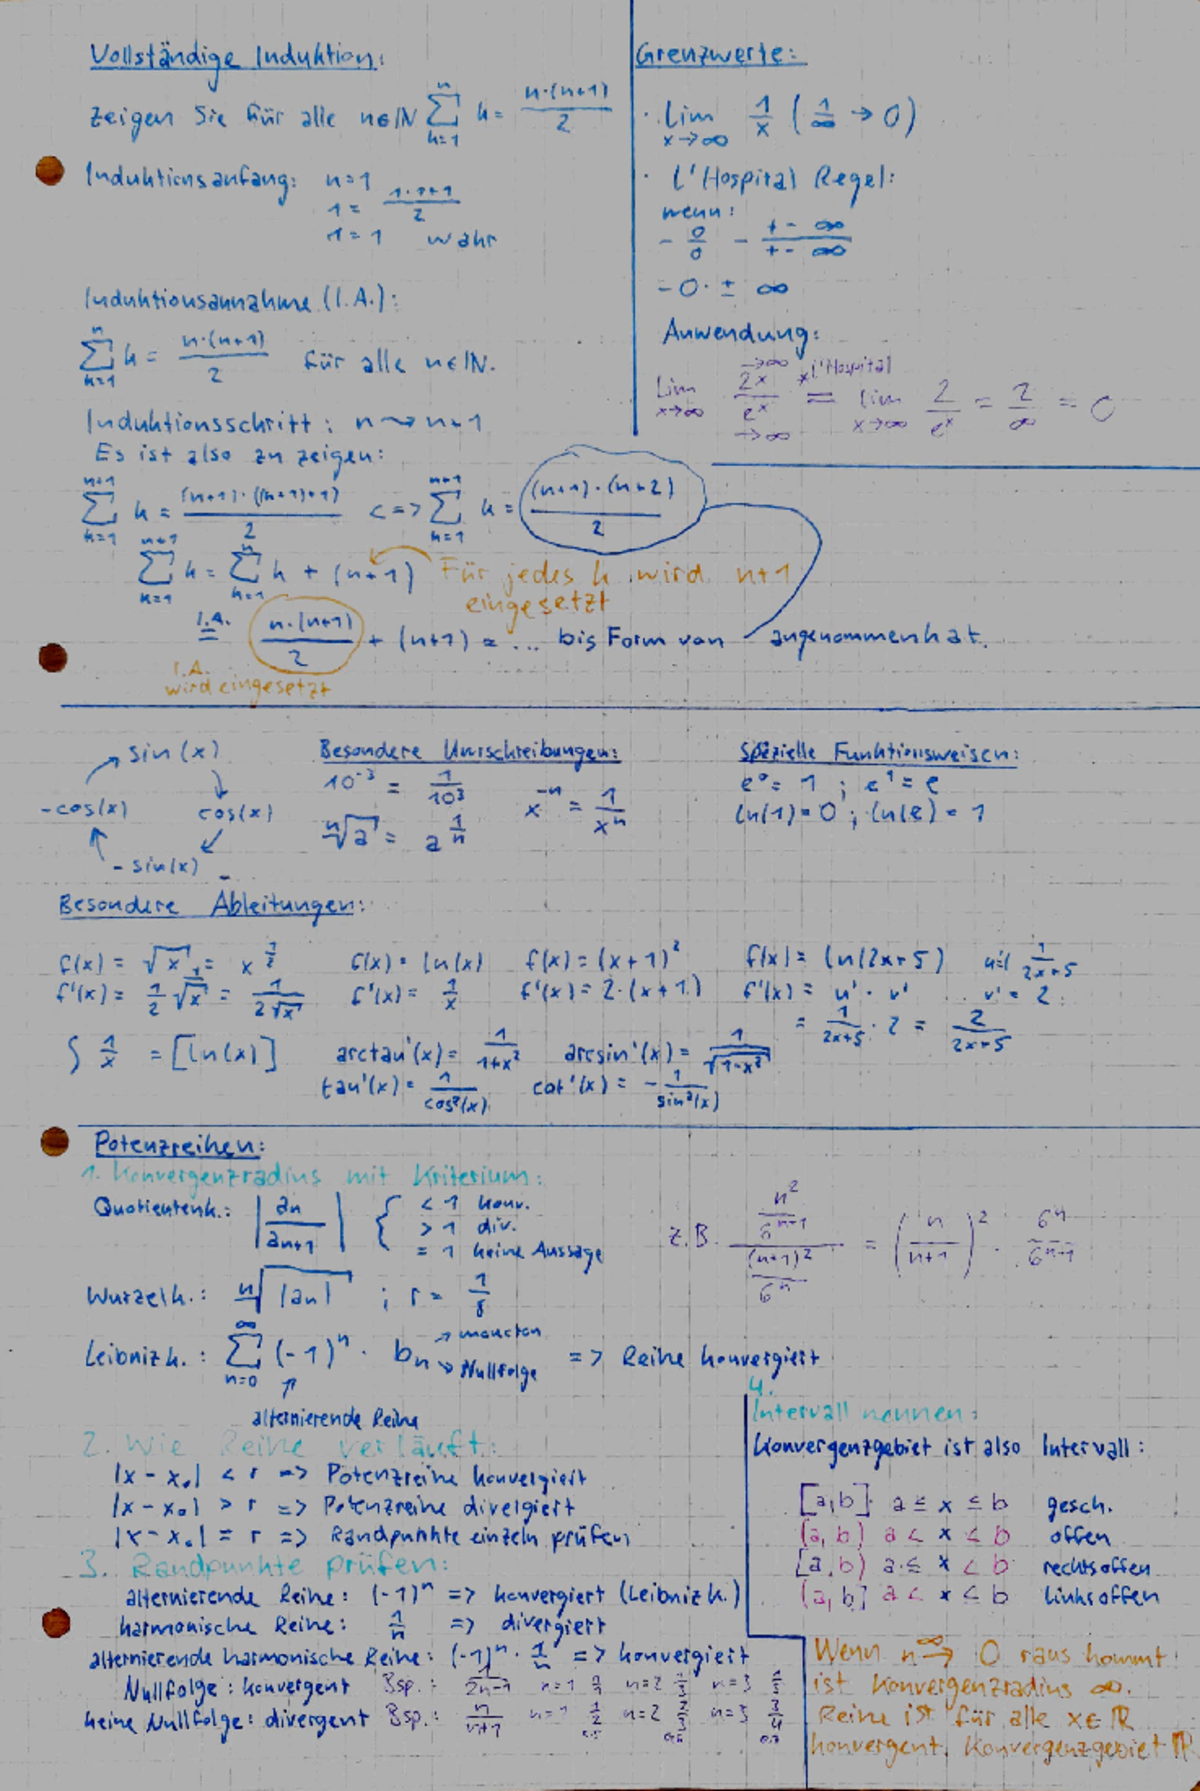 Vollständige Induktion:
Zeigen Sie für alle n∈ℕ ∑_{k=1}^{n} k = n·(n+1)/2
Induktionsanfang: n=1
1 = 1·1+1/2
1=1 wahr
Induktionsannahme (I.A.):
∑_{k=1}^{n} k = n·(n+1)/2 für alle n∈ℕ.
Induktionsschritt: n → n+1
Es ist also zu zeigen:
∑_{k=1}^{n+1} k = (n+1)·((n+1)+1)/2 <=> ∑_{k=1}^{n+1} k = (n+1)·(n+2)/2
∑_{k=1}^{n+1} k = ∑_{k=1}^{n} k + (n+1) Für jedes k wird n+1
eingesetzt
I.A. = n·(n+1)/2 + (n+1) = ... bis Form von angenommen hat.
I.A.
wird eingesetzt
Grenzwerte:
· Lim x→∞ 1/x (1/∞ → 0)
· L'Hospital Regel:
wenn:
- 0/0 - +- ∞/+- ∞
- 0 · ± ∞
Anwendung:
Lim x→∞ 2x/e^x →∞ →∞ *L'Hospital = lim x→∞ 2/e^x = 2/∞ = 0
sin(x)
-cos(x) cos(x)
-sin(x)
Besondere Umschreibungen:
10^-3 = 1/10^3
x^-n = 1/x^n
ⁿ√a = a^{1/n}
Spezielle Funktionsweisen:
e^0 = 1 ; e^1 = e
ln(1) = 0 ; ln(e) = 1
Besondere Ableitungen:
f(x) = √x = x^{1/2} f(x) = ln(x) f(x) = (x+1)^2 f(x) = ln(2x+5) u'= 1/2x+5
f'(x) = 1/2 √x = 1/2√x f'(x) = 1/x f'(x) = 2·(x+1) f'(x) = u' · v' v' = 2
= 1/2x+5 · 2 = 2/2x+5
∫ 1/x = [ln(x)] arctan'(x) = 1/1+x^2 arcsin'(x) = 1/√1-x^2
tan'(x) = 1/cos²(x) cot'(x) = - 1/sin²(x)
Potenzreihen:
1. Konvergenzradius mit Kriterium:
Quotientenk.: |an/an+1| { < 1 konv.
> 1 div.
= 1 keine Aussage
z.B. n^2/6^{n-1} / (n+1)^2/6^n = (n/n+1)^2 · 6^n/6^{n-1}
Wurzelk.: ⁿ√|an| ; r = 1/8
Leibnizk.: ∑_{n=0}^{∞} (-1)^n · bn → monoton → Nullfolge => Reihe konvergiert
alternierende Reihe
2. Wie Reihe verläuft:
|x-x0| < r => Potenzreihe konvergiert
|x-x0| > r => Potenzreihe divergiert
|x-x0| = r => Randpunkte einzeln prüfen
3. Randpunkte prüfen:
alternierende Reihe: (-1)^n => konvergiert (Leibnizk.)
harmonische Reihe: 1/n => divergiert
alternierende harmonische Reihe: (-1)^n · 1/n => konvergiert
Nullfolge: konvergent Bsp.: 1/2n-1 n=1 1/1 n=2 1/3 n=3 1/5
keine Nullfolge: divergent Bsp.: n/n+1 n=1 1/2 n=2 2/3 n=3 3/4
4.
Intervall nennen:
Konvergenzgebiet ist also Intervall:
[a,b] a ≤ x ≤ b gesch.
(a,b) a < x < b offen
[a,b) a ≤ x < b rechtsoffen
(a,b] a < x ≤ b linksoffen
Wenn n →∞ 0 raus kommt
ist Konvergenzradius ∞.
Reihe ist für alle x∈ℝ
konvergent. Konvergenzgebiet ℝ